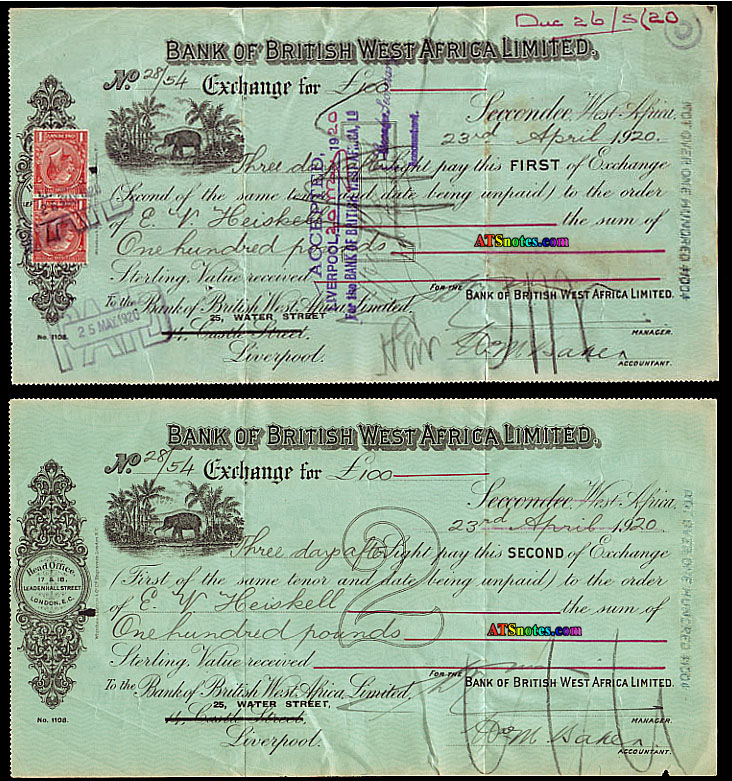 Due 26/5/20
BANK OF BRITISH WEST AFRICA LIMITED.
No. 28/54 Exchange for £100
Seccondee, West Africa,
23rd April 1920
Three days after Sight pay this FIRST of Exchange
(Second of the same tenor and date being unpaid) to the order
of E. W Heiskell the sum of
One hundred pounds
ATSnotes.com
Sterling, Value received
FOR THE BANK OF BRITISH WEST AFRICA LIMITED.
To the Bank of British West Africa, Limited,
25, WATER STREET
14, Castle Street,
Liverpool.
MANAGER.
ACCOUNTANT.
No. 1108.
ACCEPTED,
LIVERPOOL, 1920
For the BANK OF BRITISH WEST AFRICA, LD
Accountant.
NOT OVER ONE HUNDRED
PAID
25 MAY. 1920
BANK OF BRITISH WEST AFRICA LIMITED.
No. 28/54 Exchange for £100
Seccondee, West Africa,
23rd April 1920
Three days after Sight pay this SECOND of Exchange
(First of the same tenor and date being unpaid) to the order
of E. W Heiskell the sum of
One hundred pounds
ATSnotes.com
Sterling, Value received
FOR THE BANK OF BRITISH WEST AFRICA LIMITED.
To the Bank of British West Africa, Limited,
25, WATER STREET,
14, Castle Street,
Liverpool.
MANAGER.
ACCOUNTANT.
No. 1108.
Head Office,
17 & 18,
LEADENHALL STREET
LONDON, E.C.
2